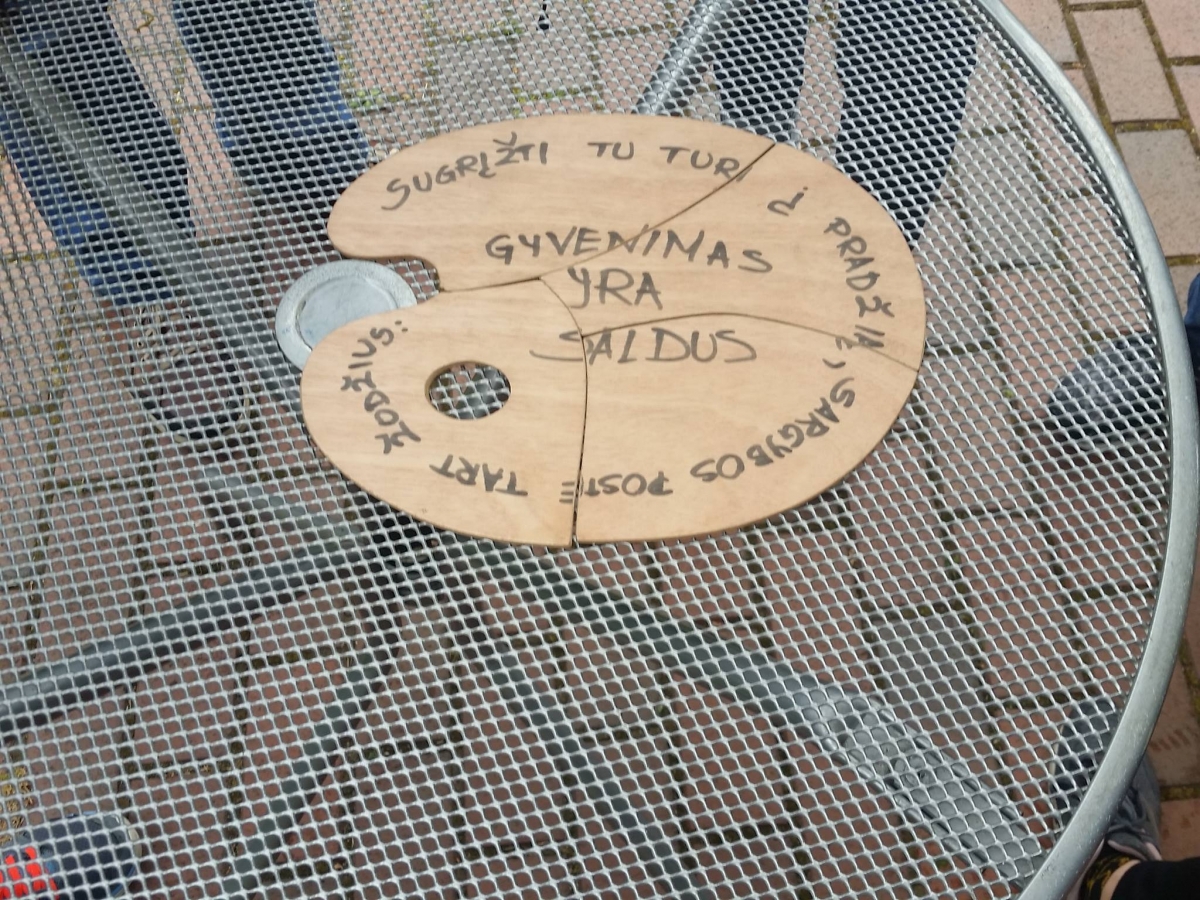 SUGRĮŽTI TU TURI Į PRADŽIĄ, SARGYBOS POSTE TART ŽODŽIUS:
GYVENIMAS
YRA
SALDUS